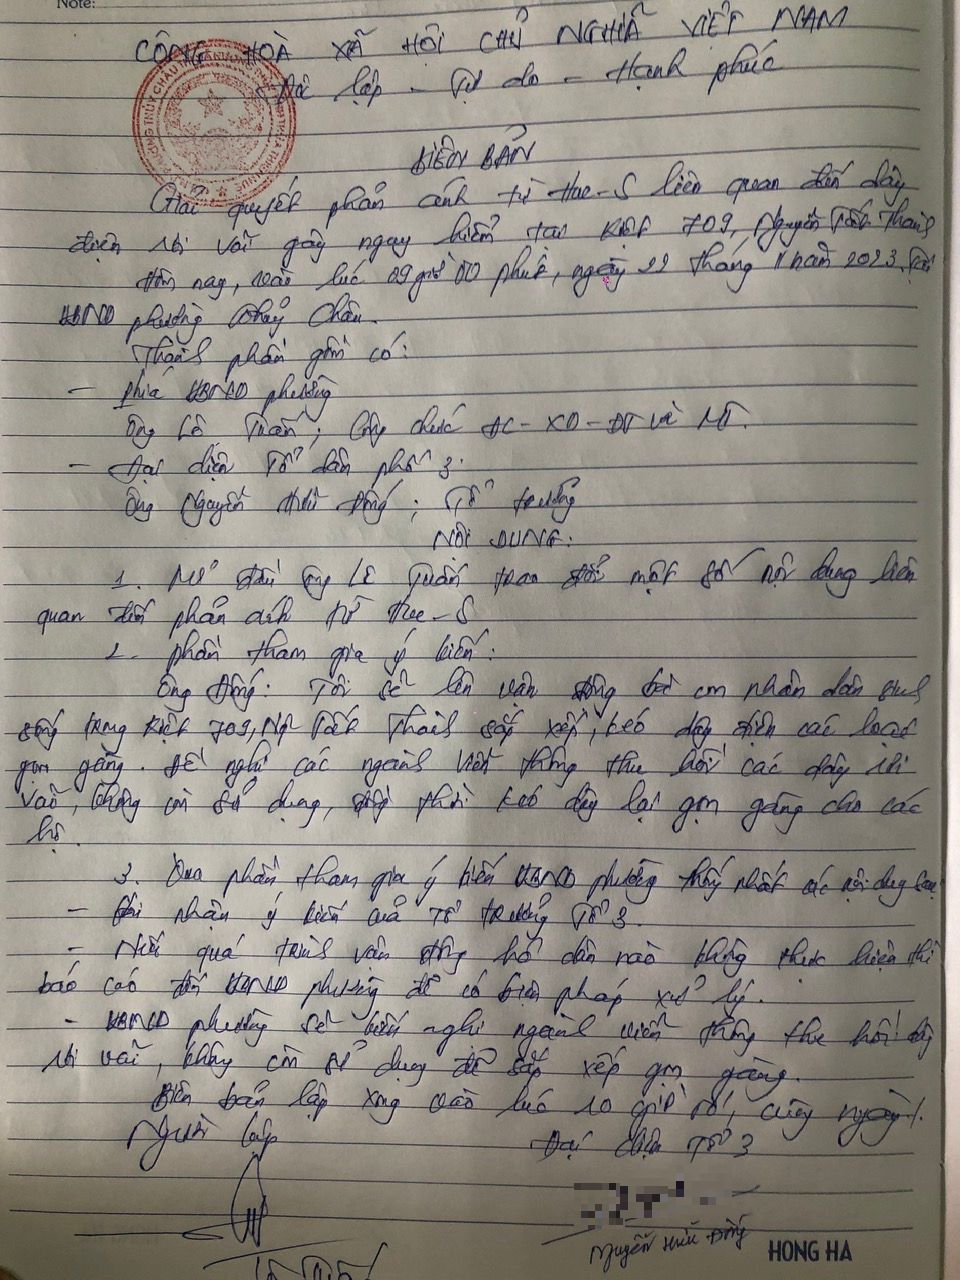 Note:
CỘNG HOÀ XÃ HỘI CHỦ NGHĨA VIỆT NAM
Độc lập - Tự do - Hạnh phúc
BIÊN BẢN
Giải quyết phản ánh từ Hue-S liên quan đến dây
điện rơi vãi gây nguy hiểm tại Kiệt 709, Nguyễn Tất Thành
Hôm nay, vào lúc 09 giờ 00 phút, ngày 22 tháng 11 năm 2023, tại
UBND phường Thủy Châu.
Thành phần gồm có:
- Phía UBND phường
Ông Lê Tuấn; Công chức ĐC-XD-ĐT và MT.
- Đại diện Tổ dân phố 3.
Ông Nguyễn Hữu Đống; Tổ trưởng
NỘI DUNG:
1. Mở đầu ông Lê Tuấn trao đổi một số nội dung liên
quan đến phản ánh từ Hue-S
2. Phần tham gia ý kiến:
Ông Đống: Tôi sẽ lên vận động bà con nhân dân sinh
sống trong Kiệt 709, Ng Tất Thành sắp xếp, kéo dây điện các loại
gọn gàng. Đề nghị các ngành viễn thông thu hồi các dây rơi
vãi, không còn sử dụng, đồng thời kéo dây lại gọn gàng cho các
hộ.
3. Qua phần tham gia ý kiến UBND phường thống nhất các nội dung sau:
- Ghi nhận ý kiến của Tổ trưởng Tổ 3.
- Nếu quá trình vận động hộ dân nào không thực hiện thì
báo cáo đến UBND phường để có biện pháp xử lý.
- UBND phường sẽ kiến nghị ngành viễn thông thu hồi dây
rơi vãi, không còn sử dụng để sắp xếp gọn gàng.
Biên bản lập xong vào lúc 10 giờ 00, cùng ngày./.
Người lập
Đại diện Tổ 3
Nguyễn Hữu Đống
HONG HA